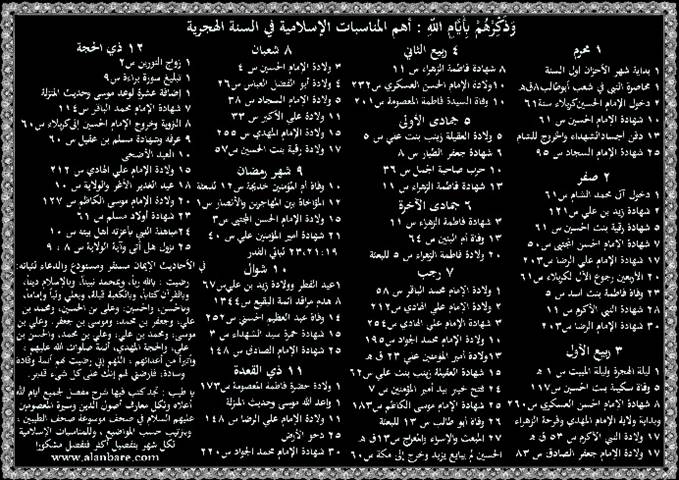 وَذَكِّرْهُمْ بِأَيَّامِ اللَّهِ : أهم المناسبات الإسلامية في السنة الهجرية
١ محرم
١ بداية شهر الأحزان اول السنة
١ محاصرة النبي في شعب أبوطالب
٢ دخول الإمام الحسين كربلاء سنة٦١
١٠ شهادة الإمام الحسين س ٦١
١٣ دفن اجساد الشهداء والخروج للشام
٢٥ شهادة الإمام السجاد س ٩٥
٢ صفر
١ دخول آل محمد الشام س ٦١
٢ شهادة زيد بن علي س١٢١
٥ شهادة رقية بنت الحسين س ٦١
٧ شهادة الامام الحسن المجتبى س٥٠
١٧ شهادة الامام علي الرضا س٢٠٣
٢٠ الأربعين رجوع الآل لكربلاء س٦١
٢٣ وفاة فاطمة بنت اسد س ٥
٢٨ شهادة النبي الأكرم س ١١
٣٠ شهادة الإمام الرضا س٢٠٣
٣ ربيع الأول
١ ليلة الهجرة وليلة المبيت س ١ هـ
٥ وفاة سكينة بنت الحسين س١١٧
٨ شهادة الإمام الحسن العسكري س٢٦٠
وبداية ولاية الإمام المهدي وفرحة الزهراء
١٧ ولادة النبي الأكرم س ٥٣ ق هـ
١٧ ولادة الإمام جعفر الصادق س ٨٣
٤ ربيع الثاني
٨ شهادة فاطمة الزهراء س ١١
١٠ ولادة الإمام الحسن العسكري س٢٣٢
١٠ وفاة السيدة فاطمة المعصومة س٢٠١
٥ جمادى الأولى
٥ ولادة العقيلة زينب بنت علي س ٥
٦ شهادة جعفر الطيار س ٨
١٠ حرب صاحبة الجمل س ٣٦
١٣ شهادة فاطمة الزهراء س ١١
٦ جمادى الآخرة
٣ شهادة فاطمة الزهراء س ١١
١٣ وفاة أم البنين س ٦٤
٢٠ ولادة فاطمة الزهراء س ٥ للبعثة
٧ رجب
١ ولادة الإمام محمد الباقر س ٥٨
٢ ولادة الامام علي الهادي س ٢١٢
٣ شهادة الإمام علي الهادي س ٢٥٤
١٠ ولادة الإمام محمد الجواد س١٩٥
١٣ ولادة أمير المؤمنين علي ٢٣ ق هـ
١٥ شهادة العقيلة زينب بنت علي س٦٢
٢٤ فتح خيبر بيد أمير المؤمنين س ٧
٢٥ شهادة الإمام موسى الكاظم س١٨٣
٢٦ وفاة أبو طالب س ١٣ للبعثة
٢٧ المبعث والإسراء والمعراج س١٣ق هـ
الحسين لم يبايع يزيد وخرج إلى مكة س٦٠
٨ شعبان
٣ ولادة الإمام الحسين س ٤
٤ ولادة أبو الفضل العباس س٢٦
٥ ولادة الإمام السجاد س ٣٨
١١ ولادة علي الأكبر س ٣٣
١٥ ولادة الإمام المهدي س ٢٥٥
١٧ ولادة رقية بنت الحسين س٥٧
٩ شهر رمضان
١٠ وفاة أم المؤمنين خديجة س ١٢ للبعثة
١٢ المؤاخاة بين المهاجرين والأنصار س١
١٥ ولادة الإمام الحسن المجتبى س٣
٢١ شهادة امير المؤمنين علي س ٤٠
٢٣،٢١،١٩ ليالي القدر
١٠ شوال
١ عيد الفطر وولادة زيد بن علي س٦٧
٨ هدم مراقد أئمة البقيع س١٣٤٤
٤ وفاة عبد العظيم الحسني س٢٥٢
١٥ شهادة حمزة سيد الشهداء س ٣
٢٥ شهادة الإمام الصادق س ١٤٨
١١ ذي القعدة
١ ولادة حضرة فاطمة المعصومة س١٧٣
١ واعد الله موسى وحديث المنزلة
١١ ولادة الإمام علي الرضا س ١٤٨
٢٥ دحو الأرض
٣٠ شهادة الإمام محمد الجواد س٢٢٠
١٢ ذي الحجة
١ زواج النورين س٢
١ تبليغ سورة براءة س٩
١ إضافة عشرة لوعد موسى وحديث المنزلة
٧ شهادة الإمام محمد الباقر س١١٤
٨ التروية وخروج الإمام الحسين إلى كربلاء س٦٠
٩ عرفة وشهادة مسلم بن عقيل س ٦٠
١٠ العيد الأضحى
١٥ ولادة الإمام علي الهادي س ٢١٢
١٨ عيد الغدير الأغر والولاية س ١٠
٢٠ ولادة الإمام موسى الكاظم س ١٢٧
٢٣ شهادة أولاد مسلم س ٦١
٢٤ مباهلة النبي بأعزته أهل بيته س ١٠
٢٥ نزول هل أتى وآية الولاية س ٨ ، ٩
في الأحاديث الإيمان مستقر ومستودع والدعاء لثباته:
رضيت : بالله رباً، وبمحمد نبياً، وبالإسلام ديناً،
وبالقرآن كتاباً، وبالكعبة قبلة، وبعلي ولياً وإماماً،
وبالحسن، والحسين، وعلي بن الحسين، ومحمد بن
علي، وجعفر بن محمد، وموسى بن جعفر، وعلي بن
موسى، ومحمد بن علي، وعلي بن محمد، والحسن بن
علي، والحجة المهدي، أئمة صلوات الله عليهم :
وأتبرأ من أعدائهم ، اللهم إني رضيت بهم أئمة وقادة
وسادة، فارضني لهم إنك على كل شيء قدير.
يا طيب : تجد كتب فيها شرح مفصل لجميع أيام الله
أعلاه ولكل معارف أصول الدين وسيرة المعصومين
عليهم السلام في صحف موسوعة صحف الطيبين ،
وبترتيب حسب المواضيع ، وللمناسبات الإسلامية
لكل شهر بتفصيل أكثر فتفضل مشكورا
www.alanbare.com